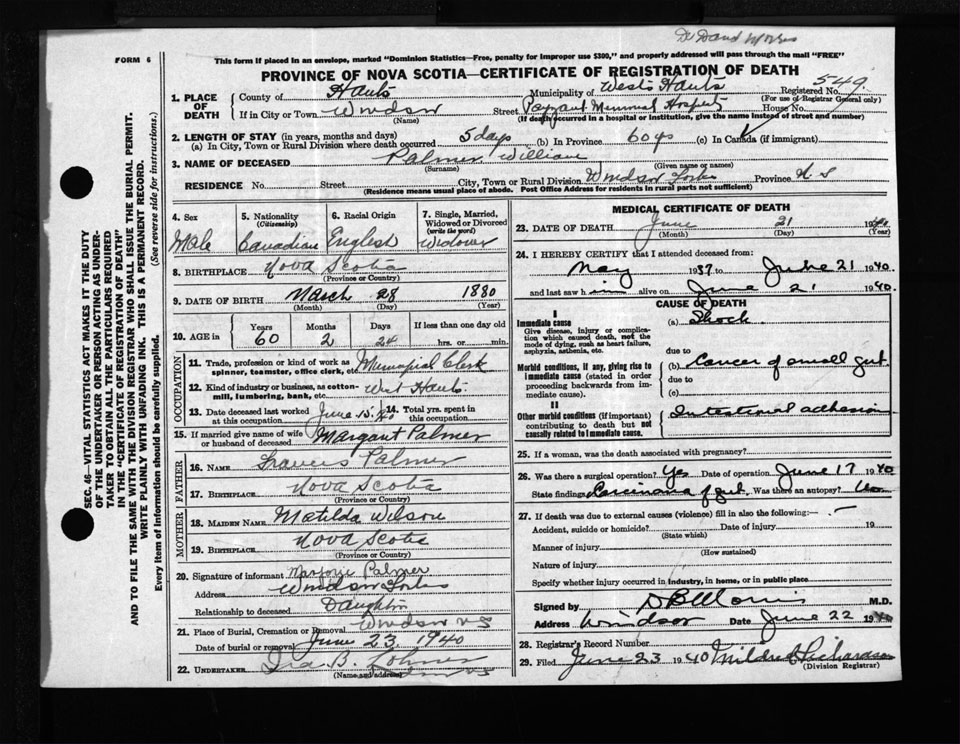 Dr David Morris
FORM 6
This form if placed in an envelope, marked "Dominion Statistics—Free, penalty for improper use $300," and properly addressed will pass through the mail "FREE"
PROVINCE OF NOVA SCOTIA—CERTIFICATE OF REGISTRATION OF DEATH
SEC. 46—VITAL STATISTICS ACT MAKES IT THE DUTY
OF THE UNDERTAKER OR PERSON ACTING AS UNDER-
TAKER TO OBTAIN ALL THE PARTICULARS REQUIRED
IN THE "CERTIFICATE OF REGISTRATION OF DEATH"
AND TO FILE THE SAME WITH THE DIVISION REGISTRAR WHO SHALL ISSUE THE BURIAL PERMIT.
WRITE PLAINLY WITH UNFADING INK. THIS IS A PERMANENT RECORD.
Every item of Information should be carefully supplied. (See reverse side for instructions.)
1. PLACE OF DEATH County of Hants Municipality of West Hants Registered No. 549
(For use of Registrar General only)
If in City or Town Windsor (Name) Street Payzant Memorial Hospital House No.
(If death occurred in a hospital or institution, give the name instead of street and number)
2. LENGTH OF STAY (in years, months and days)
(a) In City, Town or Rural Division where death occurred 5 days (b) In Province 60 ys (c) In Canada (if immigrant)
3. NAME OF DECEASED Palmer William
(Surname) (Given name or names)
RESIDENCE No. Street City, Town or Rural Division Windsor Forks Province N S
(Residence means usual place of abode. Post Office Address for residents in rural parts not sufficient)
4. Sex Male
5. Nationality (Citizenship) Canadian
6. Racial Origin English
7. Single, Married, Widowed or Divorced (write the word) Widower
8. BIRTHPLACE Nova Scotia
(Province or Country)
9. DATE OF BIRTH March 28 1880
(Month) (Day) (Year)
10. AGE in Years 60 Months 2 Days 24 If less than one day old hrs. or min.
OCCUPATION
11. Trade, profession or kind of work as spinner, teamster, office clerk, etc. Municipal Clerk
12. Kind of industry or business, as cotton-mill, lumbering, bank, etc. West Hants
13. Date deceased last worked at this occupation June 15/40 14. Total yrs. spent in this occupation
15. If married give name of wife or husband of deceased Margaret Palmer
FATHER
16. NAME Francis Palmer
17. BIRTHPLACE Nova Scotia
(Province or Country)
MOTHER
18. MAIDEN NAME Matilda Wilson
19. BIRTHPLACE Nova Scotia
(Province or Country)
20. Signature of informant Marjorie Palmer
Address Windsor Forks
Relationship to deceased Daughter
21. Place of Burial, Cremation or Removal Windsor NS
Date of burial or removal June 23 1940
22. UNDERTAKER Ira B.
(Name and address)
MEDICAL CERTIFICATE OF DEATH
23. DATE OF DEATH June 21 1940
(Month) (Day) (Year)
24. I HEREBY CERTIFY that I attended deceased from:
May 1937 to June 21 1940
and last saw h im alive on June 21 1940.
CAUSE OF DEATH
I
Immediate cause
Give disease, injury or complication which caused death, not the mode of dying, such as heart failure, asphyxia, asthenia, etc.
(a) Shock
due to
Morbid conditions, if any, giving rise to immediate cause (stated in order proceeding backwards from immediate cause).
(b) Cancer of small gut
due to
(c)
II
Other morbid conditions (if important) contributing to death but not causally related to immediate cause.
Intestinal adhesion
25. If a woman, was the death associated with pregnancy?
26. Was there a surgical operation? Yes Date of operation June 17 1940
State findings Carcinoma of gut Was there an autopsy? No
27. If death was due to external causes (violence) fill in also the following:—
Accident, suicide or homicide? Date of injury 19
(State which)
Manner of injury
(How sustained)
Nature of injury
Specify whether injury occurred in industry, in home, or in public place
Signed by D B Morris M.D.
Address Windsor Date June 22 1940
28. Registrar's Record Number
29. Filed June 23 1940 Mildred Richardson
(Division Registrar)